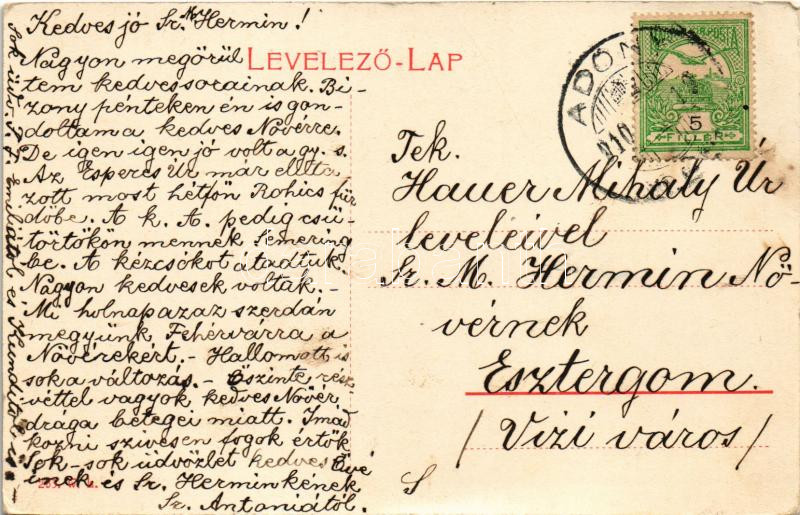 Kedves jó Sr. M. Hermin!
Nagyon megörül
tem kedves sorainak. Bi-
zony pénteken én is gon-
doltam a kedves Nővérre.
De igen igen jó volt a gy. s.
Az Esperes Úr már eluta
zott most hétfőn Rohics für
dőbe. A k. A. pedig csü-
törtökön mennek Semering
be. A kézcsókot átadtuk.
Nagyon kedvesek voltak. -
Mi holnap azaz szerdán
megyünk Fehérvárra a
Nővérekért. - Hallomott is
sok a változás. - Őszinte rész
véttel vagyok kedves Nővér
drága betegei miatt. Imád
kozni szivesen fogok értök
Sok-sok üdvözlet kedves Övé
inek és Sr. Herminkének
Sr. Antoniától.
LEVELEZŐ-LAP
ADONY
910
5
FILLÉR
Tek.
Hauer Mihály Úr
leveleivel
Sr. M. Hermin Nő-
vérnek
Esztergom.
/Vizi város/
S